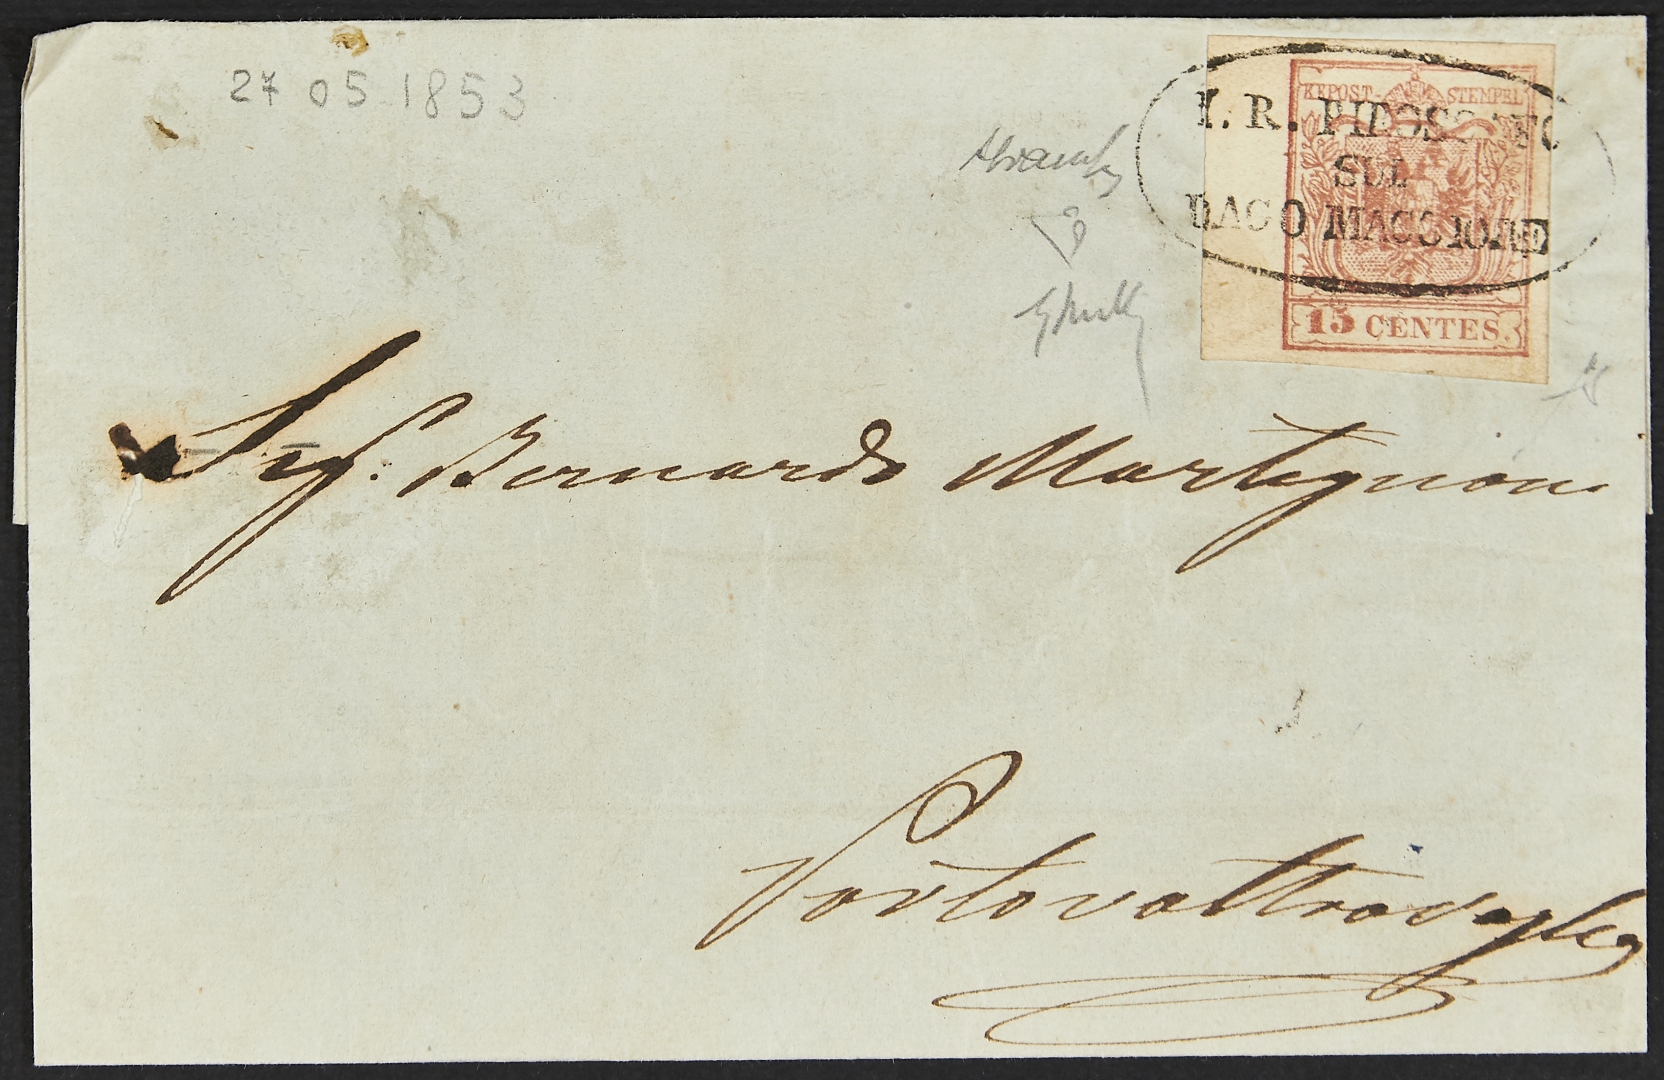 27 05 1853
KKPOST-STEMPEL
I. R. PIROSCAFO
SUL
LAGO MAGGIORE
15 CENTES.
Sig. Bernardo Martignoni
Portovaltravaglia